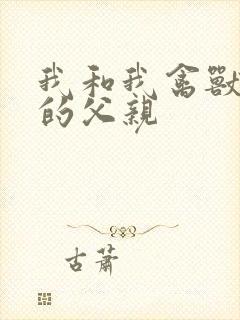 我和我禽獸
的父親
古蕭